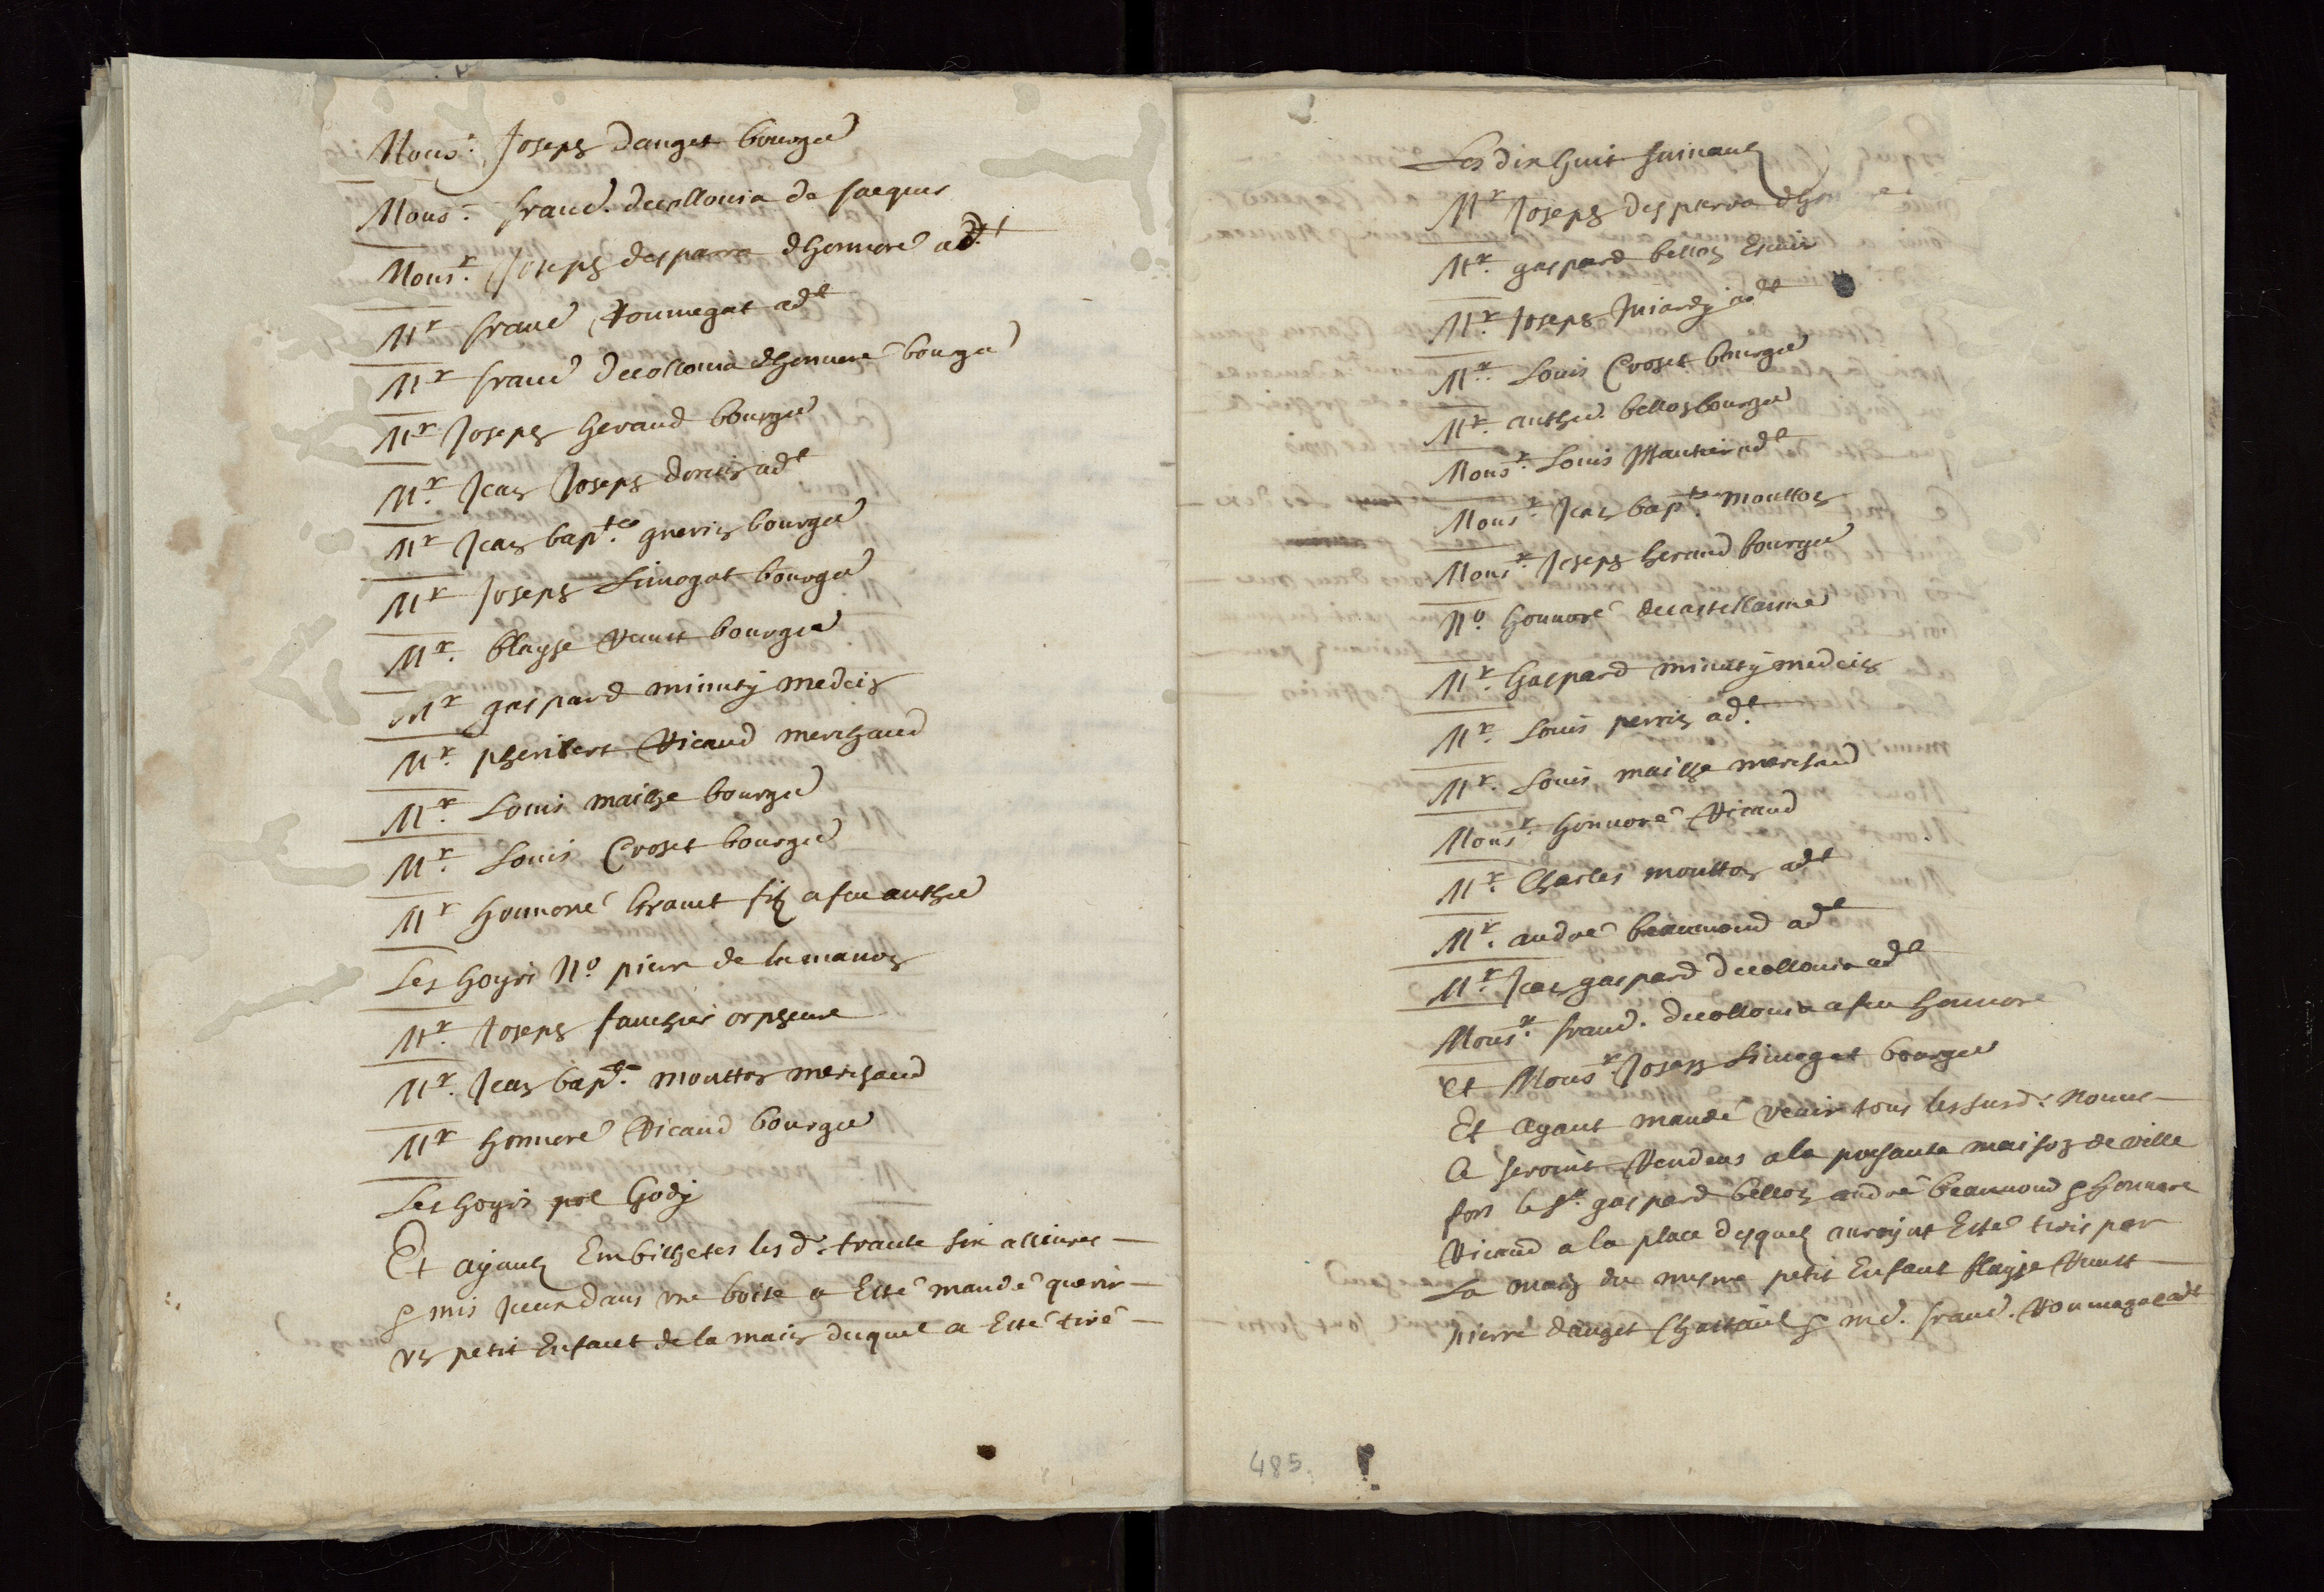 Mons.r Joseph dauget bourgo.
Mons.r franc. decollonia de Jacques
Mons.r Joseph desparra dhonnore adt
Mr franc Roumegat adt
Mr franc decollonia dhonnore bourgo.
Mr Joseph heraud bourgo.
Mr. Jean Joseph adt
Mr Jean bapt.te guerin bourgo.
Mr Joseph Simogat bourgo.
Mr. blayse bourgo.
Mr gaspard minuty medcin
Mr. Vicaud merchand
Mr. Louis maille bourgo.
Mr. Louis Croset bourgo.
Mr honnoré fils a feu anthoe.
Les hoyrs No. pierre de lamanon
Mr. Joseph fauchier orpheure
Mr. Jean bap.te moutton merchand
Mr honnore Vicaud bourgo.
Les hoyrs Gody
Et ayant Embilhetes les d. trante six allivres
& mis Iceux dans une boite a Esté mandé querir
un petit Enfant de la main duquel a Esté tiré
Les dix huit suivants
Mr Joseph desparra
Mr. gaspard bellon Escuier
Mr. Joseph adt
Mr. Louis Croset bourgo.
Mr. anthoe. bellon bourgo.
Mons.r Louis adt
Mons.r Jean bap.te moutton
Mons.r Joseph heraud bourgo.
No. honnoré decastellanne
Mr. Gaspard minuty medcin
Mr. Louis perrin adt
Mr. Louis maille merchand
Mons.r honnoré Vicaud
Mr. Charles moutton adt
Mr. andré beaumond adt
Mr. Jean gaspard decollonia adt
Mons.r franc. decollonia a feu honnore
et Mons.r Joseph Simogat bourgo.
Et ayant mandé venir tous lessusd. nommes
se seroint Rendeus a la presante maison de ville
fors le Sr. gaspard bellon andré beaumond & honnore
Vicaud a la place desquels auroynt Esté tirés par
La main du mesme petit Enfant blayse
pierre dauget & me. franc. Roumegat adt
485